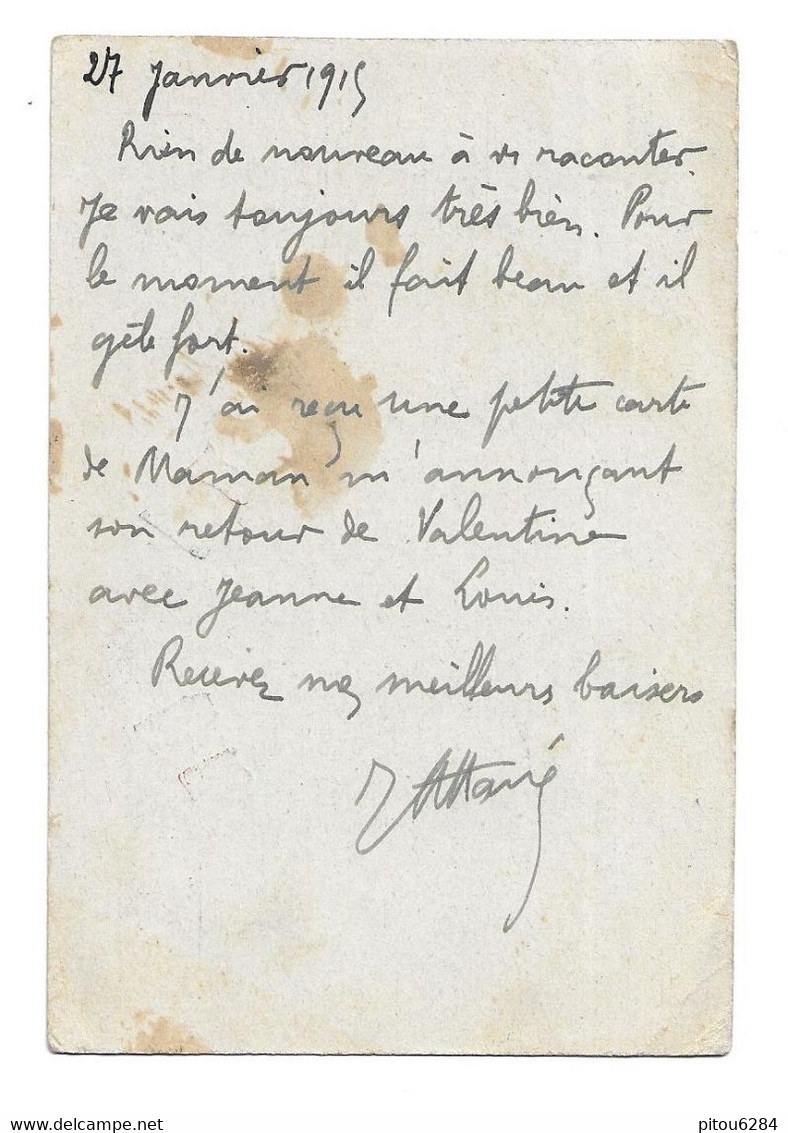 27 Janvier 1915
Rien de nouveau à vs raconter.
Je vais toujours très bien. Pour
le moment il fait beau et il
gèle fort.
J'ai reçu une petite carte
de Maman m'annonçant
son retour de Valentine
avec Jeanne et Louis.
Recevez mes meilleurs baisers
J
www.delcampe.net
pitou6284